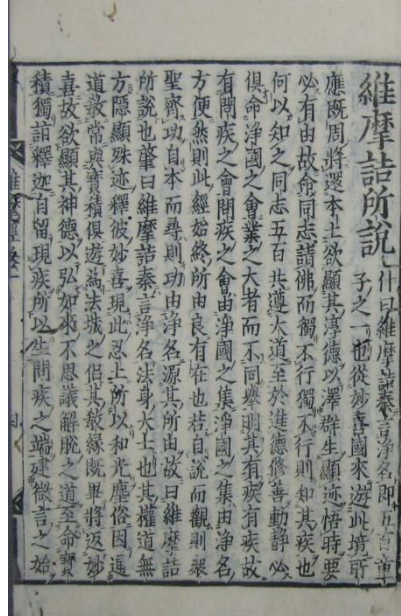 維摩詰所說
什曰維摩詰秦言淨名即五百童
子之一也從妙喜國來遊此境所
應既周將還本土欲顯其淳德以澤群生顯迹悟時要
必有由故命同志詣佛而獨不行獨不行則知其疾也
何以知之同志五百共遵大道至於進德修善動靜必
俱命淨國之會業之大者而不同舉明其有疾有疾故
有問疾之會問疾之會由淨國之集淨國之集由淨名
方便然則此經始終所由良有在也若自說而觀則眾
聖齊功自本而尋則功由淨名源其所由故曰維摩詰
所說也肇曰維摩詰秦言淨名法身大士也其權道無
方隱顯殊迹釋彼妙喜現此忍土所以和光塵俗因通
道教常與寶積俱遊為法城之侶其教緣既畢將返妙
喜故欲顯其神德以弘如來不思議解脫之道至命寶
積獨詣釋迦自留現疾所以生問疾之端建微言之始